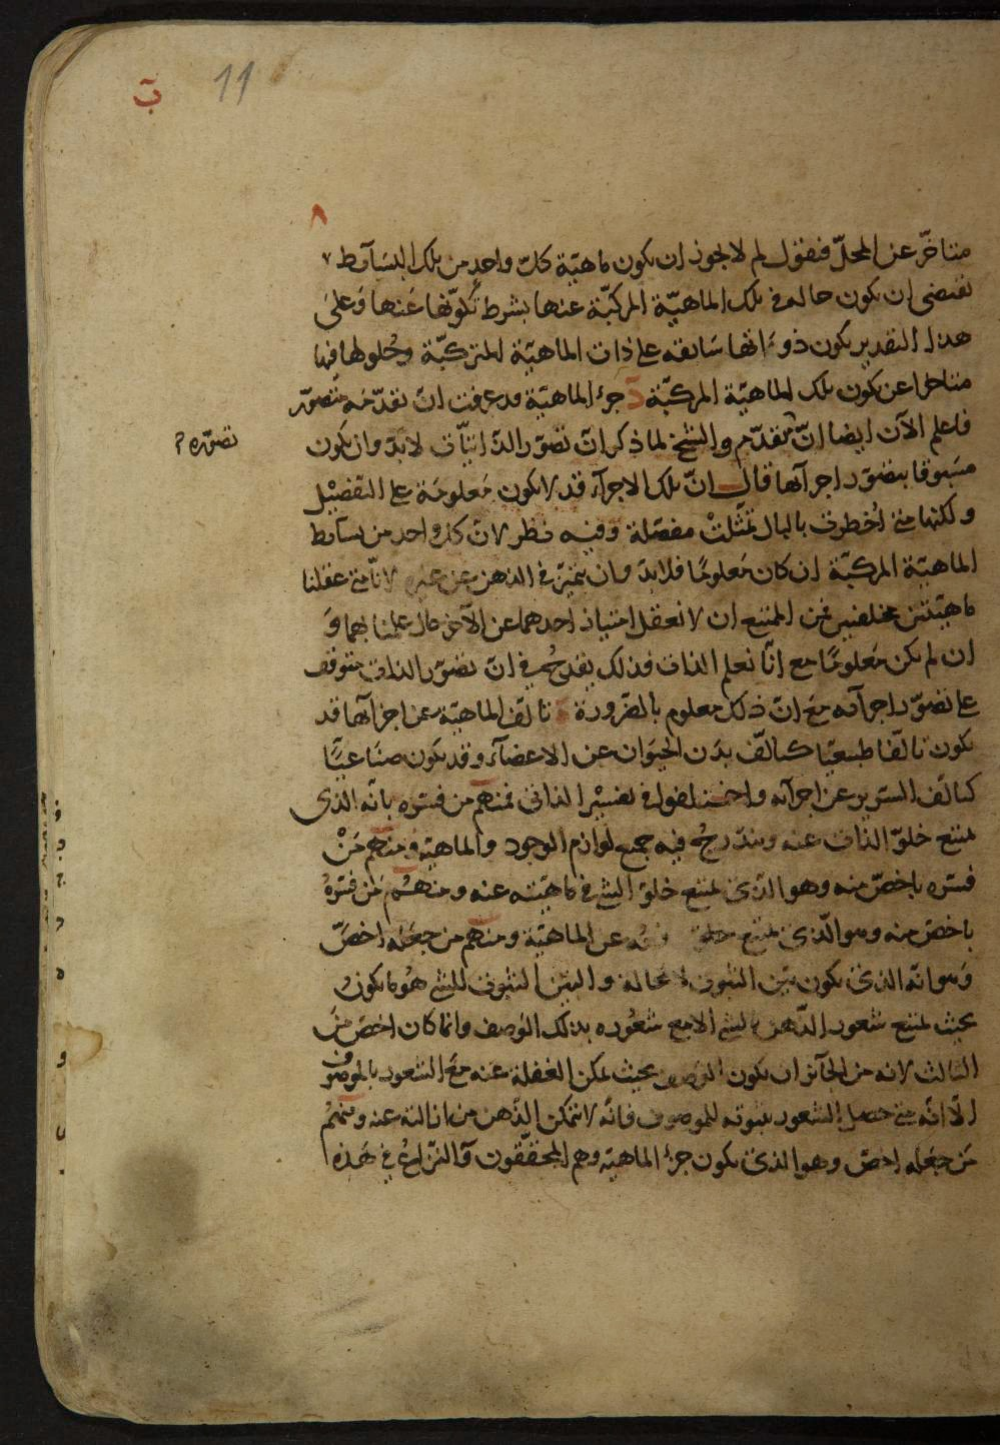 ب 11
٨
متاخّر عن المحلّ فنقول لم لا يجوز ان يكون ماهيّة كلّ واحد من تلك البسآئط
تقتضى ان يكون حاله فى تلك الماهيّة المركبّة عنها بشرط تكوّنها عنها وعلى
هذا التقدير يكون ذواتها سابقه على ذات الماهيّة المتركبّة وحلولها فيها
متاخرا عن كون تلك الماهيّة المركبّة د جزء الماهيّة قد عرفت انّ تقدّمه متصور
فاعلم الآن ايضا انّ تقدّم والشيخ لما ذكر انّ تصوّر الذاتيّات لا بدّ وان يكون
تصوّره
مسبوقا بتصوّر اجزآئها قال انّ تلك الاجزآء قد لا يكون معلومة على التفصيل
ولكنها متى اُخطرت بالبال تمثّلتْ مفصّلة وفيه نظر لانّ كل واحد من بسآئط
الماهيّة المركبّة ان كان معلومًا فلا بدّ وان يتميّز فى الذهن عن غيره لانّا متى عقلنا
ماهيّتين مختلفتين فمن الممتنع ان لا نعقل امتياز احدهما عن الآخر حال علمنا بهما و
ان لم يكن معلومًا مع انّا نعلم الذات فذلك يقدح فى انّ تصوّر الذات متوقف
على تصوّر اجزآئه مع انّ ذلك معلوم بالضرورة ه تالّف الماهيّة عن اجزآئها قد
يكون تالّفا طبيعيّا كتالّف بدن الحيوان عن الاعضآء وقد يكون صناعيًّا
كتالّف السرير عن اجزآئه و اختلفوا فى تفسير الذاتى فمنهم من فسّره بانّه الذى
يمتنع خلوّ الذات عنه ويندرج فيه جميع لوازم الوجود والماهيّة ومنهم مَنْ
فسّره باخصّ منه وهو الذى يمتنع خلوّ الشئ فى ماهيّته عنه ومنهم من فسّره
باخصّ منه وهو الّذى يمتنع عن الماهيّة ومنهم من جعله اخصّ
وهو انّه الذى يكون بيّن الثبوت لا محالة والبيّن الثبوت للشئ هو ما يكون
بحيث يمتنع شعور الذّهن بالشئ الا مع شعوره بذلك الوصف وانّما كان اخصّ من
الثالث لانه من الجآئز ان يكون الوصف بحيث يمكن الغفلة عنه مع الشعور بالموصوف
الّا انّه متى حصل الشعور بثبوته للموصوف فانّه لا يتمكن الذّهن من ازالته عنه ومنهم
من جعله اخصّ وهو الذى يكون جزء الماهيّة وهم المحقّقون والنّزاع فى هذه